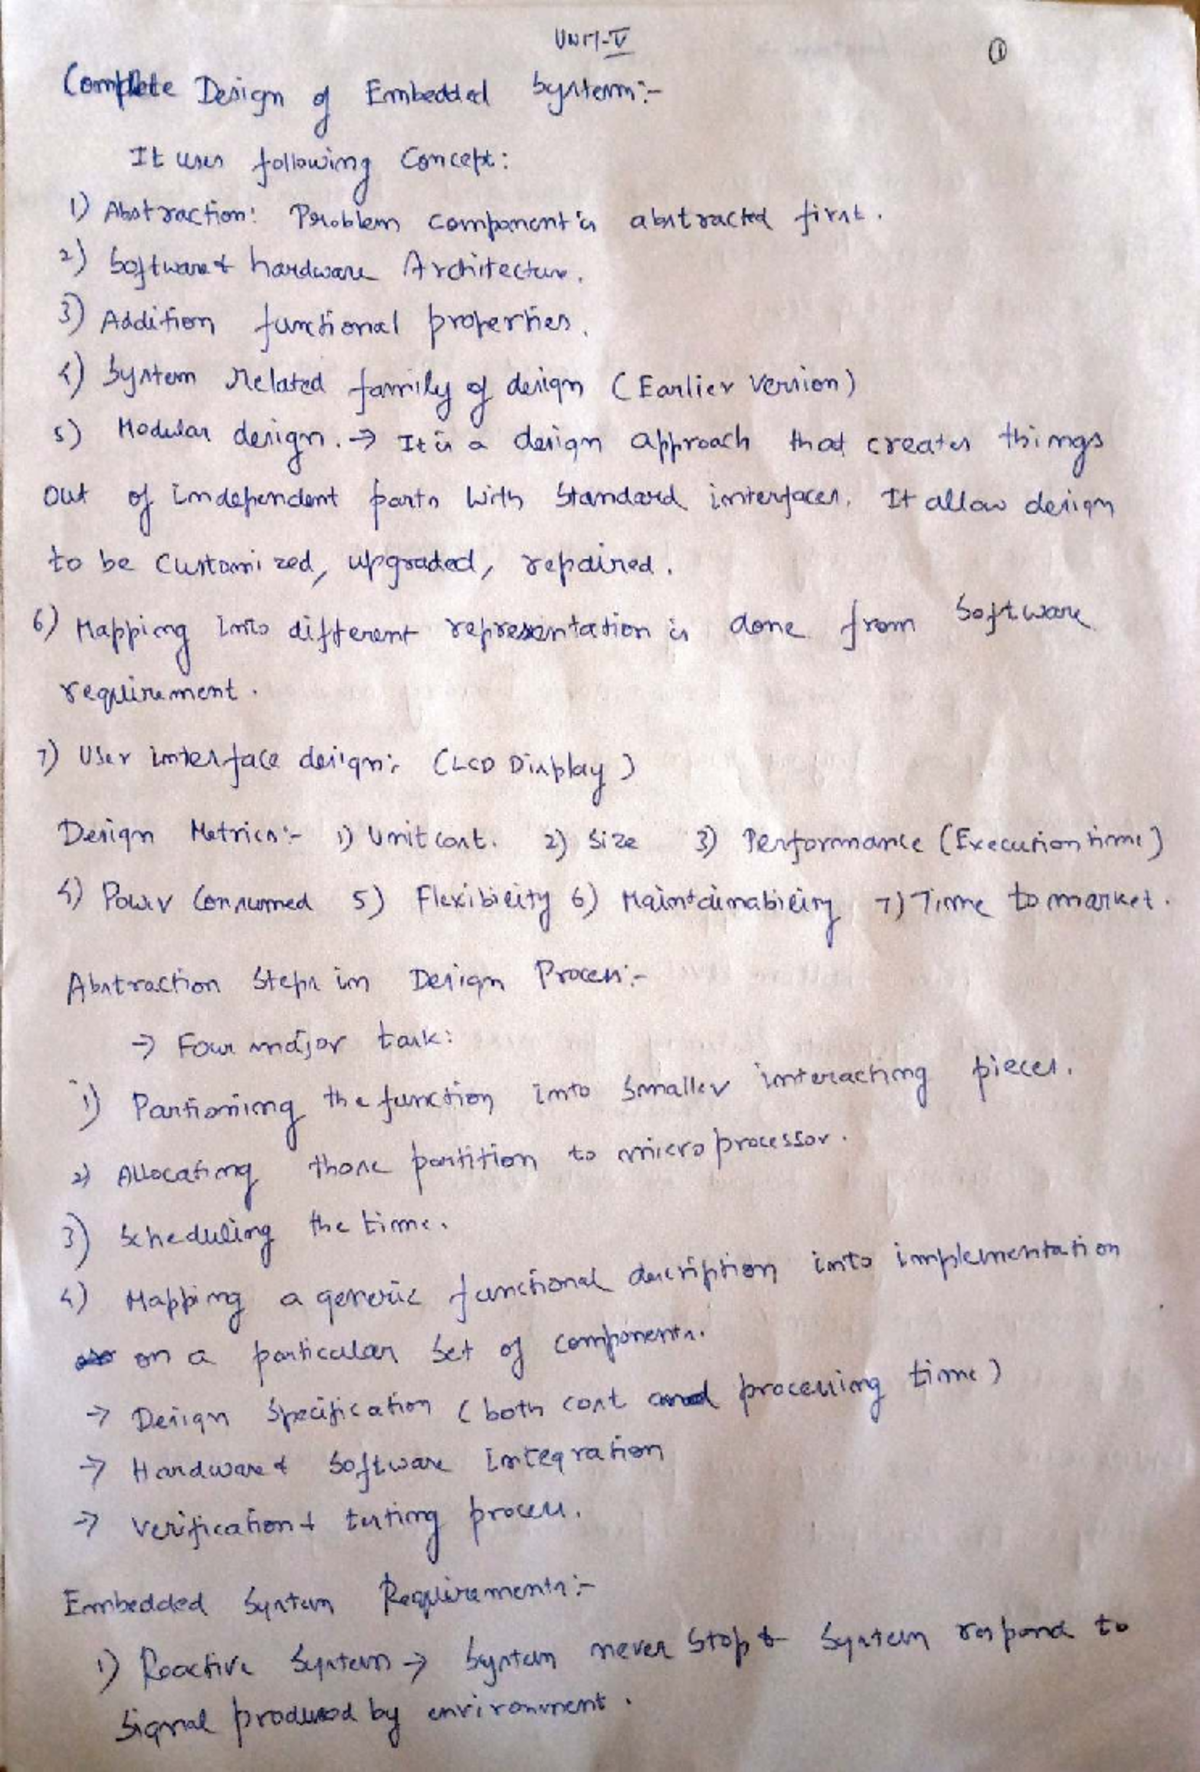 UNIT-V
①
Complete Design of Embedded System:-
It uses following Concept:
1) Abstraction: Problem component is abstracted first.
2) Software & hardware Architecture.
3) Addition functional properties.
4) System related family of design (Earlier Version)
5) Modular design. → It is a design approach that creates things
out of independent parts with standard interfaces. It allow design
to be customized, upgraded, repaired.
6) Mapping into different representation is done from Software
requirement.
7) User interface design: (LCD Display)
Design Metrics:- 1) Unit cost. 2) Size 3) Performance (Execution time)
4) Power Consumed 5) Flexibility 6) Maintainability 7) Time to market.
Abstraction Steps in Design Process:-
→ Four major task:
1) Partioning the function into smaller interacting pieces.
2) Allocating those partition to microprocessor.
3) Scheduling the time.
4) Mapping a generic functional description into implementation
on a particular set of components.
→ Design Specification (both cost and processing time)
→ Hardware & Software Integration
→ Verification & testing process.
Embedded System Requirements:-
1) Reactive System → System never stop & System respond to
Signal produced by environment.